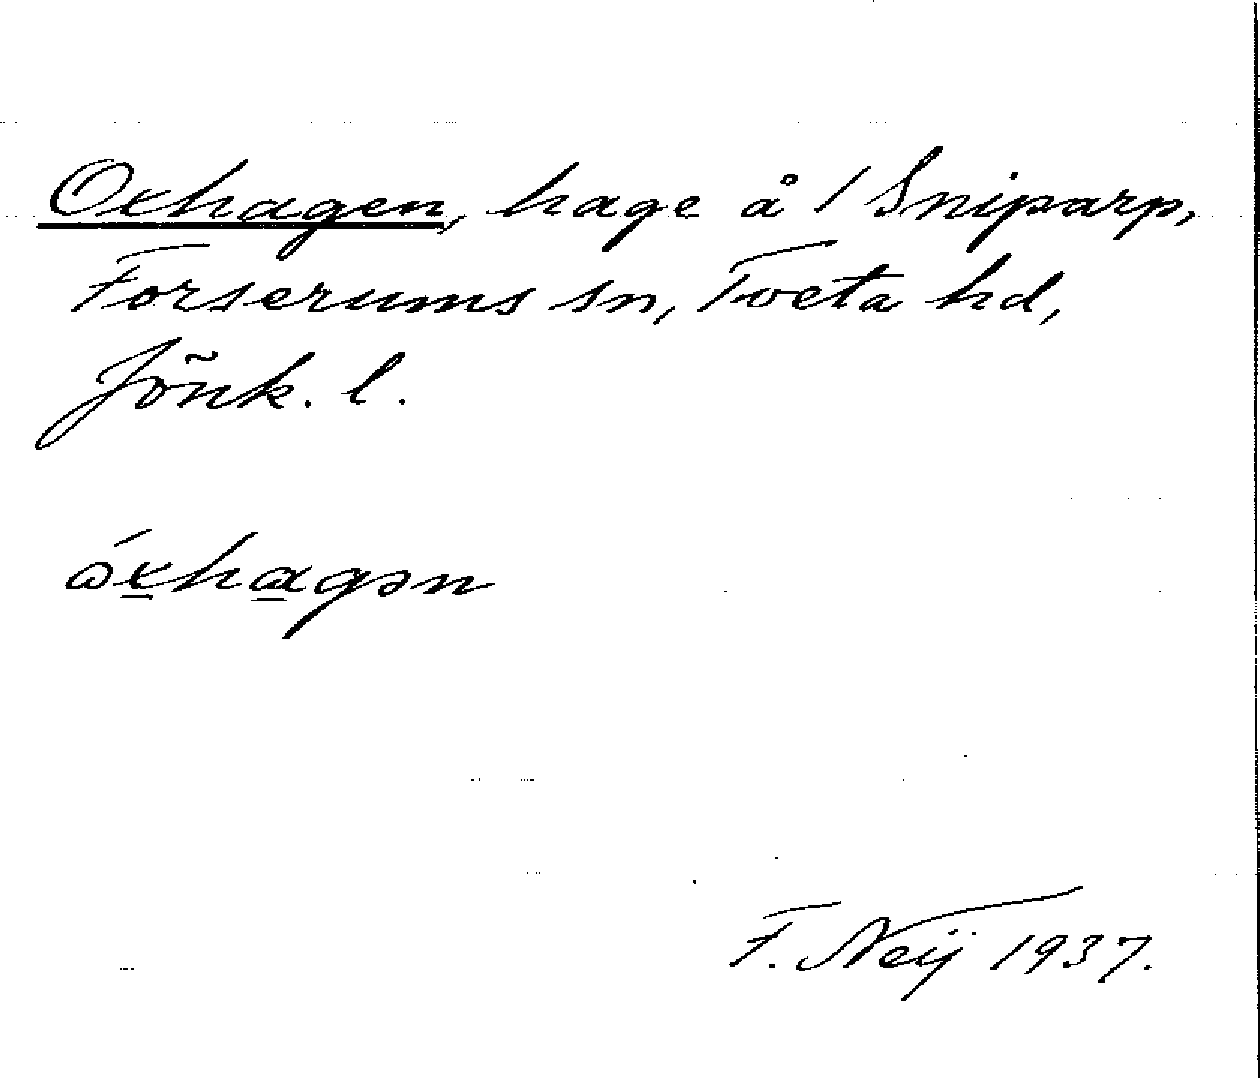 Oxhagen, hage å 1 Sniparp,
Forserums sn, Tveta hd,
Jönk. l.
ɷ́xhagən
F. Neij 1937.